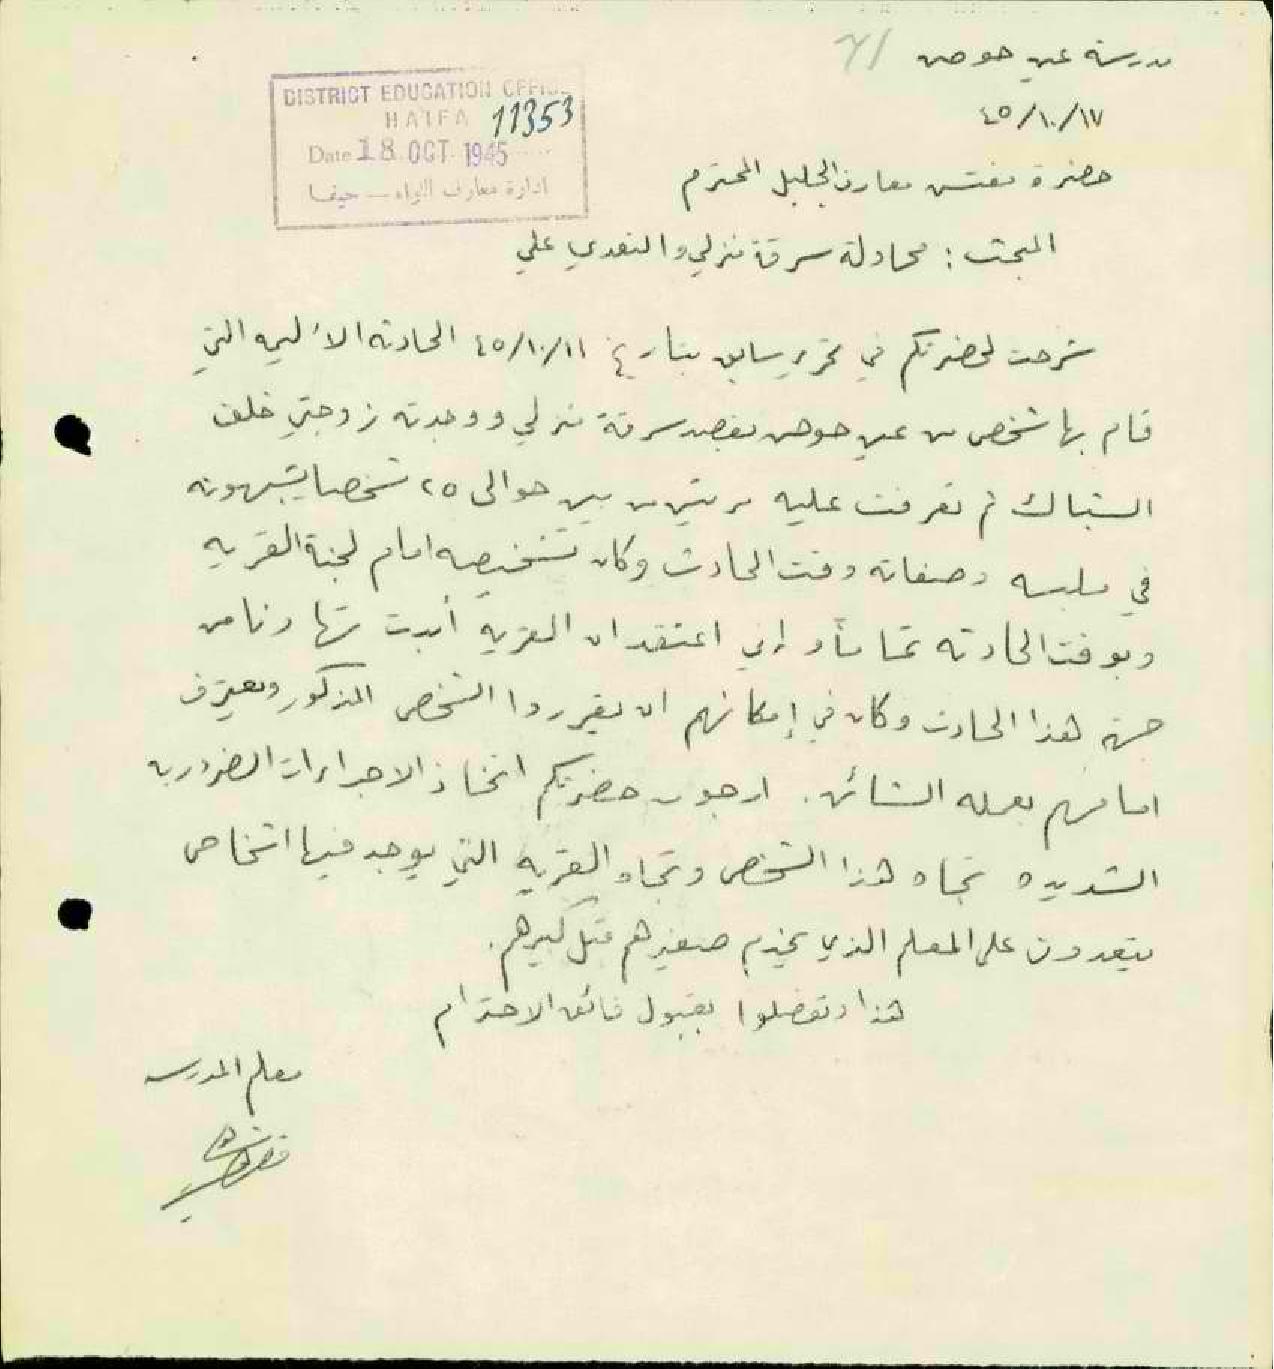 مدرسة عين حوض
٤٥/١٠/١٧
DISTRICT EDUCATION OFFICE
HAIFA 11353
Date 18 OCT 1945
ادارة معارف اللواء — حيفا
حضرة مفتش معارف الجليل المحترم
المبحث : محاولة سرقة منزلي والتعدي علي
شرحت لحضرتكم في تحرير سابق بتاريخ ٤٥/١٠/١١ الحادثه الأليمه التي
قام بها شخص من عين حوض بقصد سرقة منزلي ووجدته زوجتي خلف
الشباك ثم تعرفت عليه مرتين من بين حوالى ٢٥ شخصا يشبهونه
في ملبسه وصفاته وقت الحادث وكان تشخيصه امام لجنة القريه
وبوقت الحادثه تماماً وإني اعتقد ان القريه أبدت تهاونا من
جهة هذا الحادث وكان في إمكانهم ان يقرروا الشخص المذكور ويعترف
امامهم بعمله الشائن. ارجو حضرتكم اتخاذ الاجراءات الضروريه
الشديده تجاه هذا الشخص وتجاه القريه التي يوجد فيها اشخاص
يتعدون على المعلم الذي يخدم صغيرهم قبل كبيرهم.
هذا وتفضلوا بقبول فائق الاحترام
معلم المدرسه